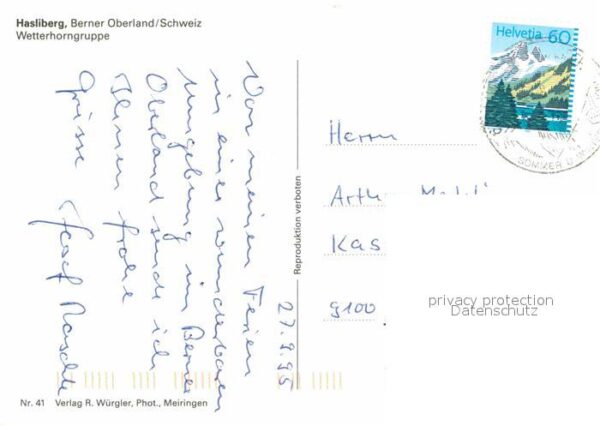 Hasliberg, Berner Oberland/Schweiz
Wetterhorngruppe
27.9.95
Von meinen Ferien
in einer wunderbaren
Umgebung im Berner
Oberland sende ich
Ihnen frohe
Grüsse Josef
Reproduktion verboten
Helvetia 60
SOMMER
Herrn
Kas
9100
privacy protection
Datenschutz
Nr. 41 Verlag R. Würgler, Phot., Meiringen